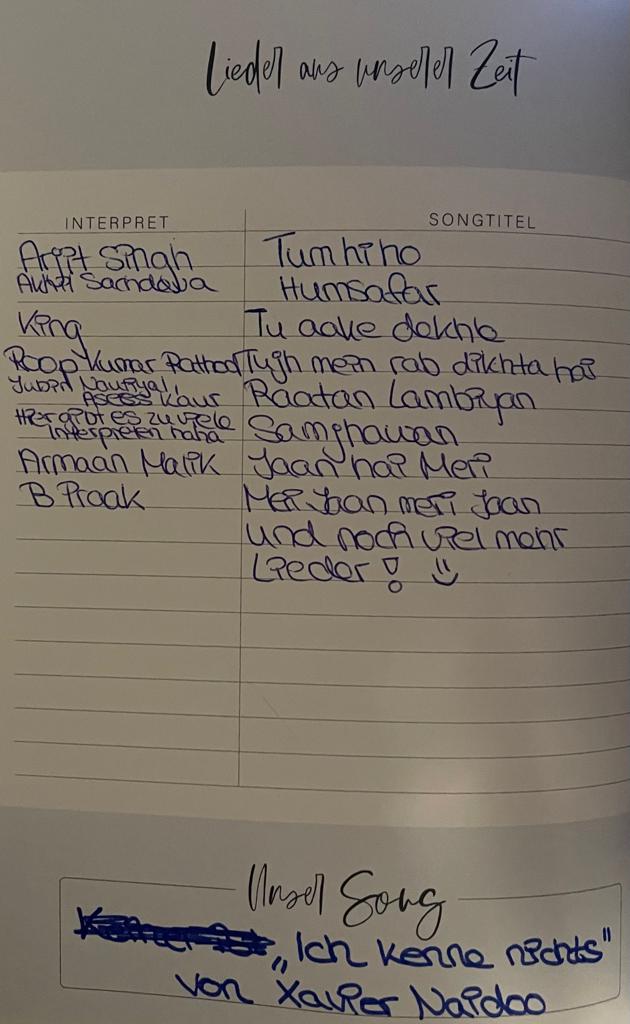 Lieder aus unserer Zeit
INTERPRET SONGTITEL
Arijit Singh Tum hi ho
Akhil Sachdeva Humsafar
King Tu aake dekhle
Roop Kumar Rathod Tujh mein rab dikhta hai
Jubin Nautiyal, Asees Kaur Raatan Lambiyan
Hier gibt es zu viele Interpreten haha Samjhawan
Armaan Malik Jaan hai Meri
B Praak Meri Jaan meri Jaan
und noch viel mehr
Lieder!
Unser Song
„Ich kenne nichts"
von Xavier Naidoo